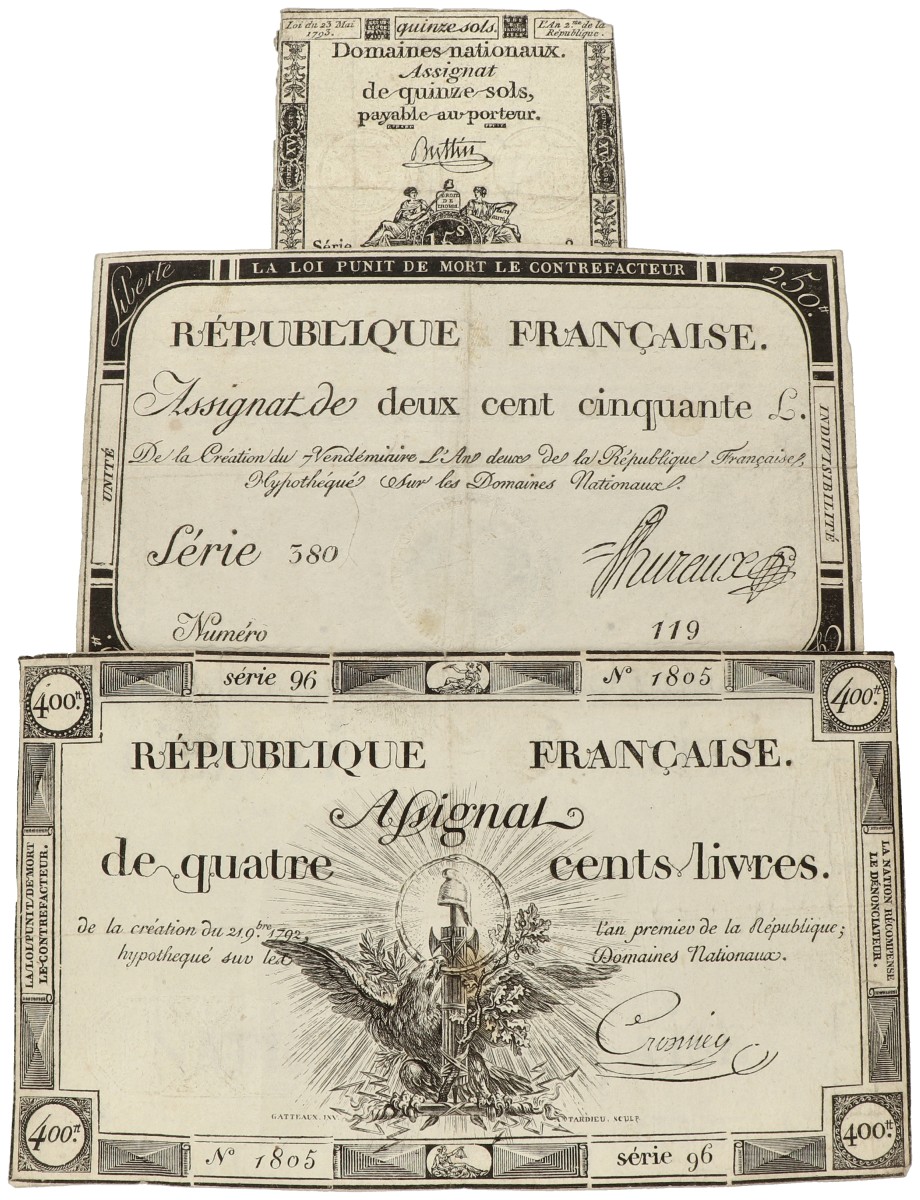 Loi du 23 Mai
1793.
quinze sols.
L'An 2.me de la
République.
Domaines nationaux.
Assignat
de quinze sols,
payable au porteur.
Buttin
DROIT
DE
15s
Série
LA LOI PUNIT DE MORT LE CONTREFACTEUR
Liberte
250.tt
UNITÉ
INDIVISIBILITÉ
RÉPUBLIQUE FRANÇAISE.
Assignat de deux cent cinquante L.
De la Création du 7 Vendémiaire L'An deux de la République Française,
Hypothéqué sur les Domaines Nationaux.
Série 380
Numéro 119
400.tt
série 96
N° 1805
400.tt
RÉPUBLIQUE FRANÇAISE.
Assignat
de quatre cents livres.
de la création du 21 9.bre 1792, l'an premier de la République;
hypothequé sur les Domaines Nationaux.
LA LOI PUNIT DE MORT
LE CONTREFACTEUR.
LA NATION RÉCOMPENSE
LE DÉNONCIATEUR.
GATTEAUX. INV
TARDIEU. SCULP.
400.tt
N° 1805
série 96
400.tt